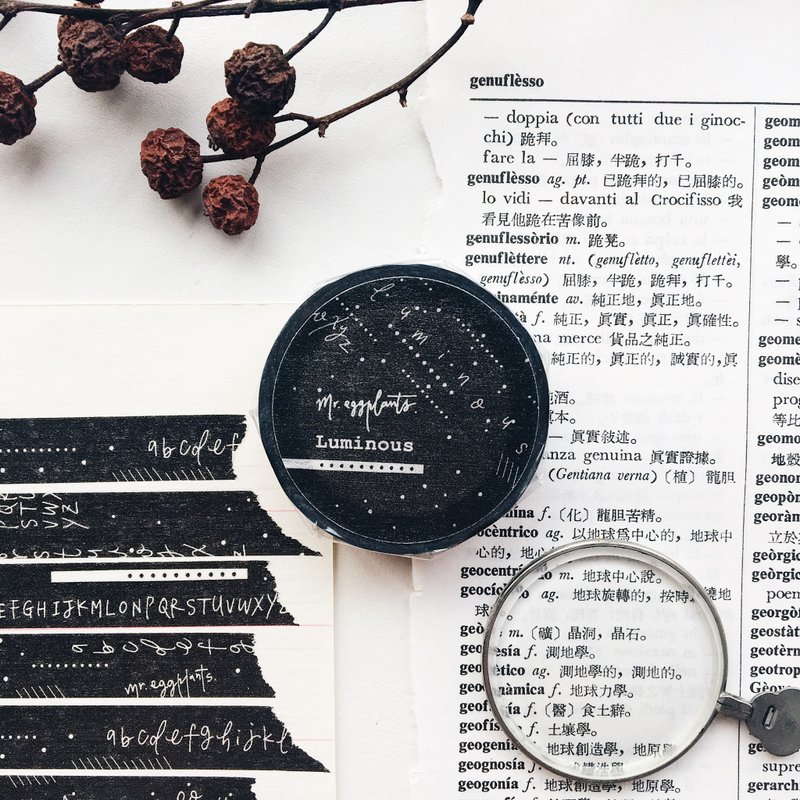 genuflèsso
— doppia (con tutti due i ginoc-
chi) 跪拜。
fare la — 屈膝，半跪，打千。
genuflèsso ag. pt. 已跪拜的，已屈膝的。
lo vidi — davanti al Crocifisso 我
看見他跪在苦像前。
genuflessòrio m. 跪凳。
genuflèttere nt. (genuflètto, genuflettèi,
genuflèsso) 屈膝，半跪，跪拜，打千。
inaménte av. 純正地，眞正地。
tà f. 純正，眞實，眞正，眞確性。
na merce 貨品之純正。
純正的，眞正的，誠實的，眞
酒。
本。
— 眞實敍述。
anza genuina 眞實證據。
(Gentiana verna)〔植〕龍胆
ina f.〔化〕龍胆苦精。
ocèntrico ag. 以地球爲中心的，地球中
心的，地心
geocentri m. 地球中心說。
geocíc ag. 地球旋轉的，按時 繞地
球
geò m.〔礦〕晶洞，晶石。
esía f. 測地學。
ètico ag. 測地學的，測地的。
geo nàmica f. 地球力學。
geof ía f.〔醫〕食土癖。
geofís f. 土壤學。
geogenía 地球創造學，地原學
geognosía
geogonía f. 地球創造學，地原學。
geom
geom
geom
geòm
geome
學。
geome
geomè
dise
prog
等比
geomo
地殼
geonon
geopòn
georàm
立於
geòrgic
geòrgic
poem
georgòf
geostàt
geotèrn
geotrop
Gèov
supre
gerarch
xyz
Luminous
Mr. eggplants.
Luminous
abcdef
EFGHIJKMLONPQRSTUVWXYZ
mr. eggplants.
abcdefghijkl